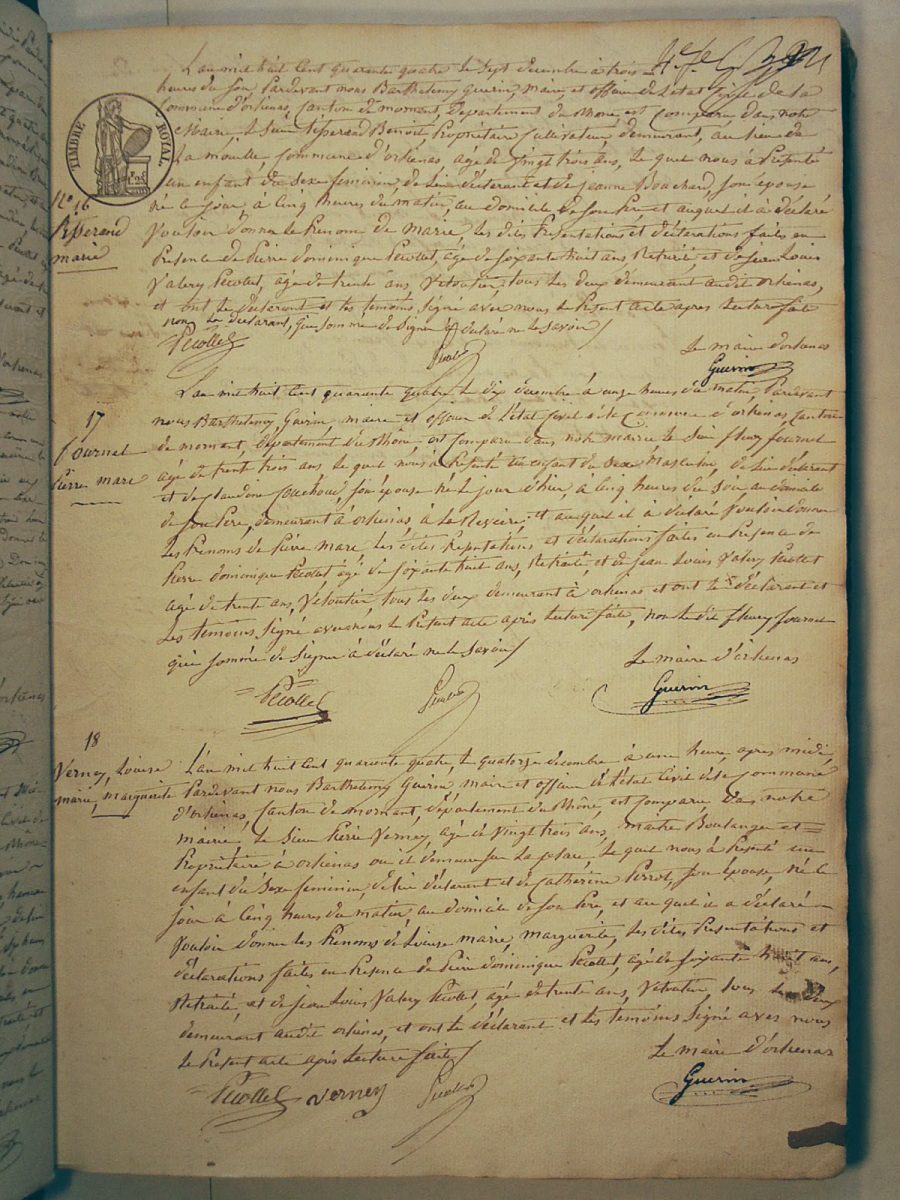 L'an mil huit cent quarante quatre le sept decembre à trois
heures du soir, Pardevant nous Barthelemy Guerin, Maire et officier de l'etat Civil de la
Commune d'orlienas, Canton de mornant, Département du Rhône, est Comparu dans notre
Mairie, le Sieur Tisserand Benoit, Propriétaire Cultivateur, demeurant, au lieu de
La mouille Commune d'orlienas, agé de Vingt trois ans, Le quel nous a Présenté
un enfant du Sexe feminin, de lui déclarant et de Jeanne Bouchard, son épouse
né le jour, à Cinq heures du matin, au domicile de son Père, et auquel il à déclaré
Vouloir donner le Prénom de Marie, les dites Présentations et déclarations faites en
Présence de Pierre dominique Pécollet, agé de soixante huit ans, Retraité, et de Jean Louis
Valery Pécollet, agé de trente ans, Veloutier, tous les deux demeurant audit orlienas,
et ont Le déclarant et les temoins Signé avec nous le Présent acte après Lecture faite
non Le déclarant, qui sommé de Signer à déclaré ne le Savoir /
TIMBRE ROYAL
N° 16
Tisserand
marie
Pécollet
Le Maire d'orlienas
Guerin
L'an mil huit Cent quarante quatre, le dix decembre à onze heures du matin, Pardevant
nous Barthelemy Guerin maire et officier de l'état Civil de la Commune d'orlienas, Canton
de mornant, département du Rhône, est Comparu dans notre mairie le Sieur fleury fournel
agé de trent trois ans le quel nous a Présenté un enfant du Sexe Masculin, de lui déclarant
et de Claudine son épouse né le jour d'hier, à Cinq heures du Soir au domicile
de son Père, demeurant à orlienas, à et au quel il à déclaré Vouloir donner
Les Prénoms de Pierre Marc, les dites Présentations et déclarations faites en Présence de
Pierre dominique Pécollet, agé de soixante huit ans, Retraité, et de Jean Louis Valery Pécollet
agé de trente ans, Veloutier, tous les deux demeurant à orlienas et ont le déclarant et
Les temoins Signé avec nous le Présent acte après lecture faite, non le dit fleury fournel
qui sommé de Signer à déclaré ne le Savoir /
17
fournel
Pierre marc
Le Maire d'orlienas
Pécollet
Guerin
18
Verney, Louise
marie, marguerite
L'an mil huit cent quarante quatre, le quatorze decembre à une heure, après midi,
Pardevant nous Barthelemy Guerin maire et officier de l'état Civil de la Commune
d'orlienas, Canton de Mornant, département du Rhône, est Comparu dans notre
mairie, le Sieur Pierre Verney, agé de Vingt trois ans, maitre Boulanger et
Propriétaire à orlienas ou il demeure sur la place, le quel nous à Présenté un
enfant du Sexe feminin, de lui déclarant et de Catherine Perrot, son épouse né le
jour à Cinq heures du matin, au domicile de son Père, et au quel il a déclaré
Vouloir donner les Prénoms de Louise marie, marguerite, les dites Présentations et
déclarations faites en Présence de Pierre dominique Pécollet, agé de soixante huit ans,
Retraité, et de Jean Louis Valery Pécollet, agé de trente ans, Veloutier tous les deux
demeurant audit orlienas, et ont le déclarant et les temoins Signé avec nous
le Présent acte après Lecture faite /
Le Maire d'orlienas
Pécollet Verney Pécollet
Guerin